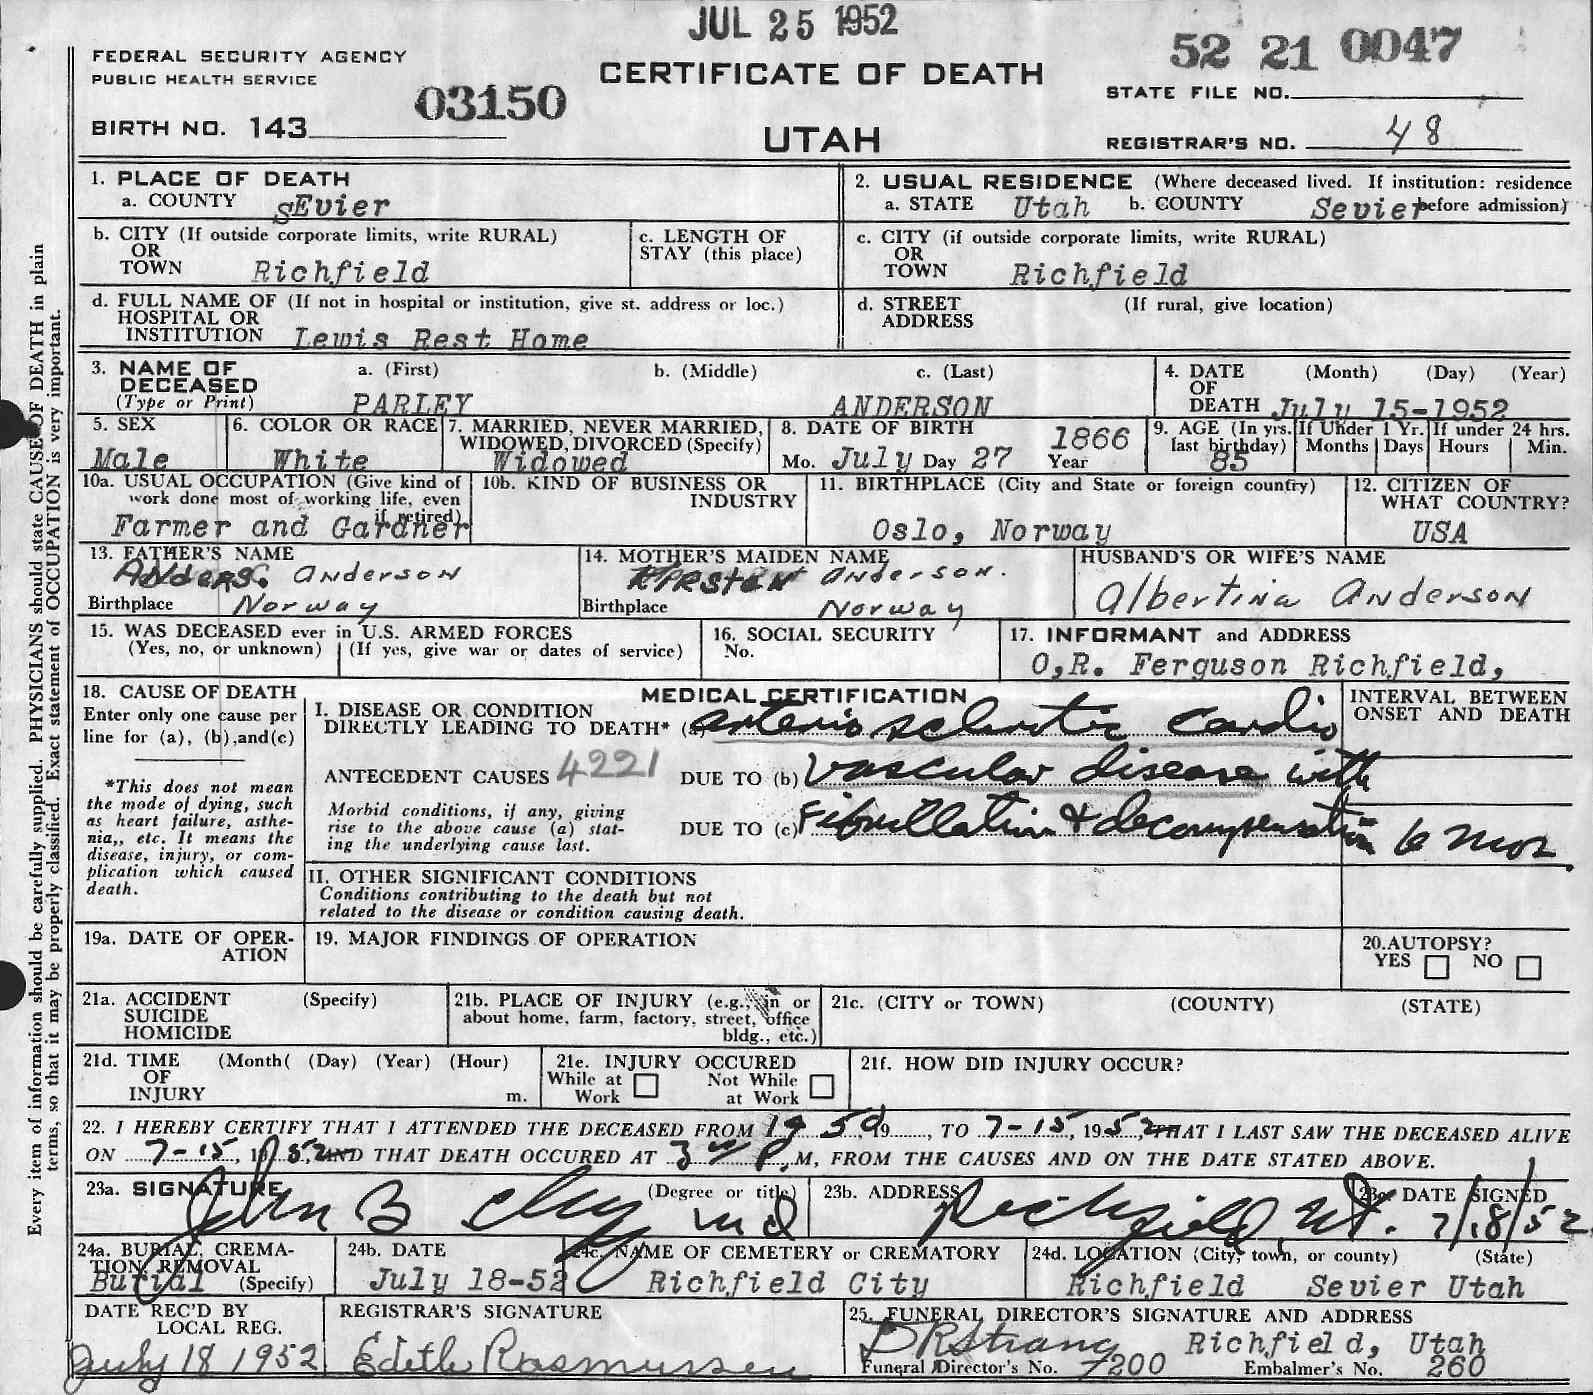 JUL 25 1952
FEDERAL SECURITY AGENCY
PUBLIC HEALTH SERVICE
CERTIFICATE OF DEATH
52 21 0047
STATE FILE NO.
03150
BIRTH NO. 143
UTAH
REGISTRAR'S NO. 48
Every item of information should be carefully supplied. PHYSICIANS should state CAUSE OF DEATH in plain
terms, so that it may be properly classified. Exact statement of OCCUPATION is very important.
1. PLACE OF DEATH
a. COUNTY sEvier
2. USUAL RESIDENCE (Where deceased lived. If institution: residence
before admission)
a. STATE Utah b. COUNTY Sevier
b. CITY (If outside corporate limits, write RURAL)
OR
TOWN Richfield
c. LENGTH OF
STAY (this place)
c. CITY (if outside corporate limits, write RURAL)
OR
TOWN Richfield
d. FULL NAME OF (If not in hospital or institution, give st. address or loc.)
HOSPITAL OR
INSTITUTION Lewis Rest Home
d. STREET (If rural, give location)
ADDRESS
3. NAME OF
DECEASED
(Type or Print)
a. (First) b. (Middle) c. (Last)
PARLEY ANDERSON
4. DATE (Month) (Day) (Year)
OF
DEATH July 15-1952
5. SEX
Male
6. COLOR OR RACE
White
7. MARRIED, NEVER MARRIED,
WIDOWED, DIVORCED (Specify)
Widowed
8. DATE OF BIRTH
Mo. July Day 27 Year 1866
9. AGE (In yrs.
last birthday)
85
If Under 1 Yr.
Months Days
If under 24 hrs.
Hours Min.
10a. USUAL OCCUPATION (Give kind of
work done most of working life, even
if retired)
Farmer and Gardner
10b. KIND OF BUSINESS OR
INDUSTRY
11. BIRTHPLACE (City and State or foreign country)
Oslo, Norway
12. CITIZEN OF
WHAT COUNTRY?
USA
13. FATHER'S NAME
Anderson
Birthplace Norway
14. MOTHER'S MAIDEN NAME
Anderson.
Birthplace Norway
HUSBAND'S OR WIFE'S NAME
Albertina Anderson
15. WAS DECEASED ever in U.S. ARMED FORCES
(Yes, no, or unknown) (If yes, give war or dates of service)
16. SOCIAL SECURITY
No.
17. INFORMANT and ADDRESS
O,R. Ferguson Richfield,
18. CAUSE OF DEATH
Enter only one cause per
line for (a), (b),and(c)
*This does not mean
the mode of dying, such
as heart failure, asthe-
nia,, etc. It means the
disease, injury, or com-
plication which caused
death.
MEDICAL CERTIFICATION
I. DISEASE OR CONDITION
DIRECTLY LEADING TO DEATH* (a) arteriosclerotic cardio
ANTECEDENT CAUSES 4221 DUE TO (b) vascular disease with
Morbid conditions, if any, giving
rise to the above cause (a) stat-
ing the underlying cause last.
DUE TO (c) Fibrillation & decompensation 6 mos.
INTERVAL BETWEEN
ONSET AND DEATH
II. OTHER SIGNIFICANT CONDITIONS
Conditions contributing to the death but not
related to the disease or condition causing death.
19a. DATE OF OPER-
ATION
19. MAJOR FINDINGS OF OPERATION
20.AUTOPSY?
YES NO
21a. ACCIDENT (Specify)
SUICIDE
HOMICIDE
21b. PLACE OF INJURY (e.g., in or
about home, farm, factory, street, office
bldg., etc.)
21c. (CITY or TOWN) (COUNTY) (STATE)
21d. TIME (Month( (Day) (Year) (Hour)
OF
INJURY m.
21e. INJURY OCCURED
While at Work
Not While at Work
21f. HOW DID INJURY OCCUR?
22. I HEREBY CERTIFY THAT I ATTENDED THE DECEASED FROM 1950, 19, TO 7-15, 1952, THAT I LAST SAW THE DECEASED ALIVE
ON 7-15, 1952, AND THAT DEATH OCCURED AT 3 P.M, FROM THE CAUSES AND ON THE DATE STATED ABOVE.
23a. SIGNATURE (Degree or title)
John B md
23b. ADDRESS
Richfield, Ut.
23c. DATE SIGNED
7/18/52
24a. BURIAL, CREMA-
TION REMOVAL
Burial (Specify)
24b. DATE
July 18-52
24c. NAME OF CEMETERY or CREMATORY
Richfield City
24d. LOCATION (City, town, or county) (State)
Richfield Sevier Utah
DATE REC'D BY
LOCAL REG.
July 18 1952
REGISTRAR'S SIGNATURE
Edith Rasmussen
25. FUNERAL DIRECTOR'S SIGNATURE AND ADDRESS
Richfield, Utah
Funeral Director's No. 200 Embalmer's No. 260